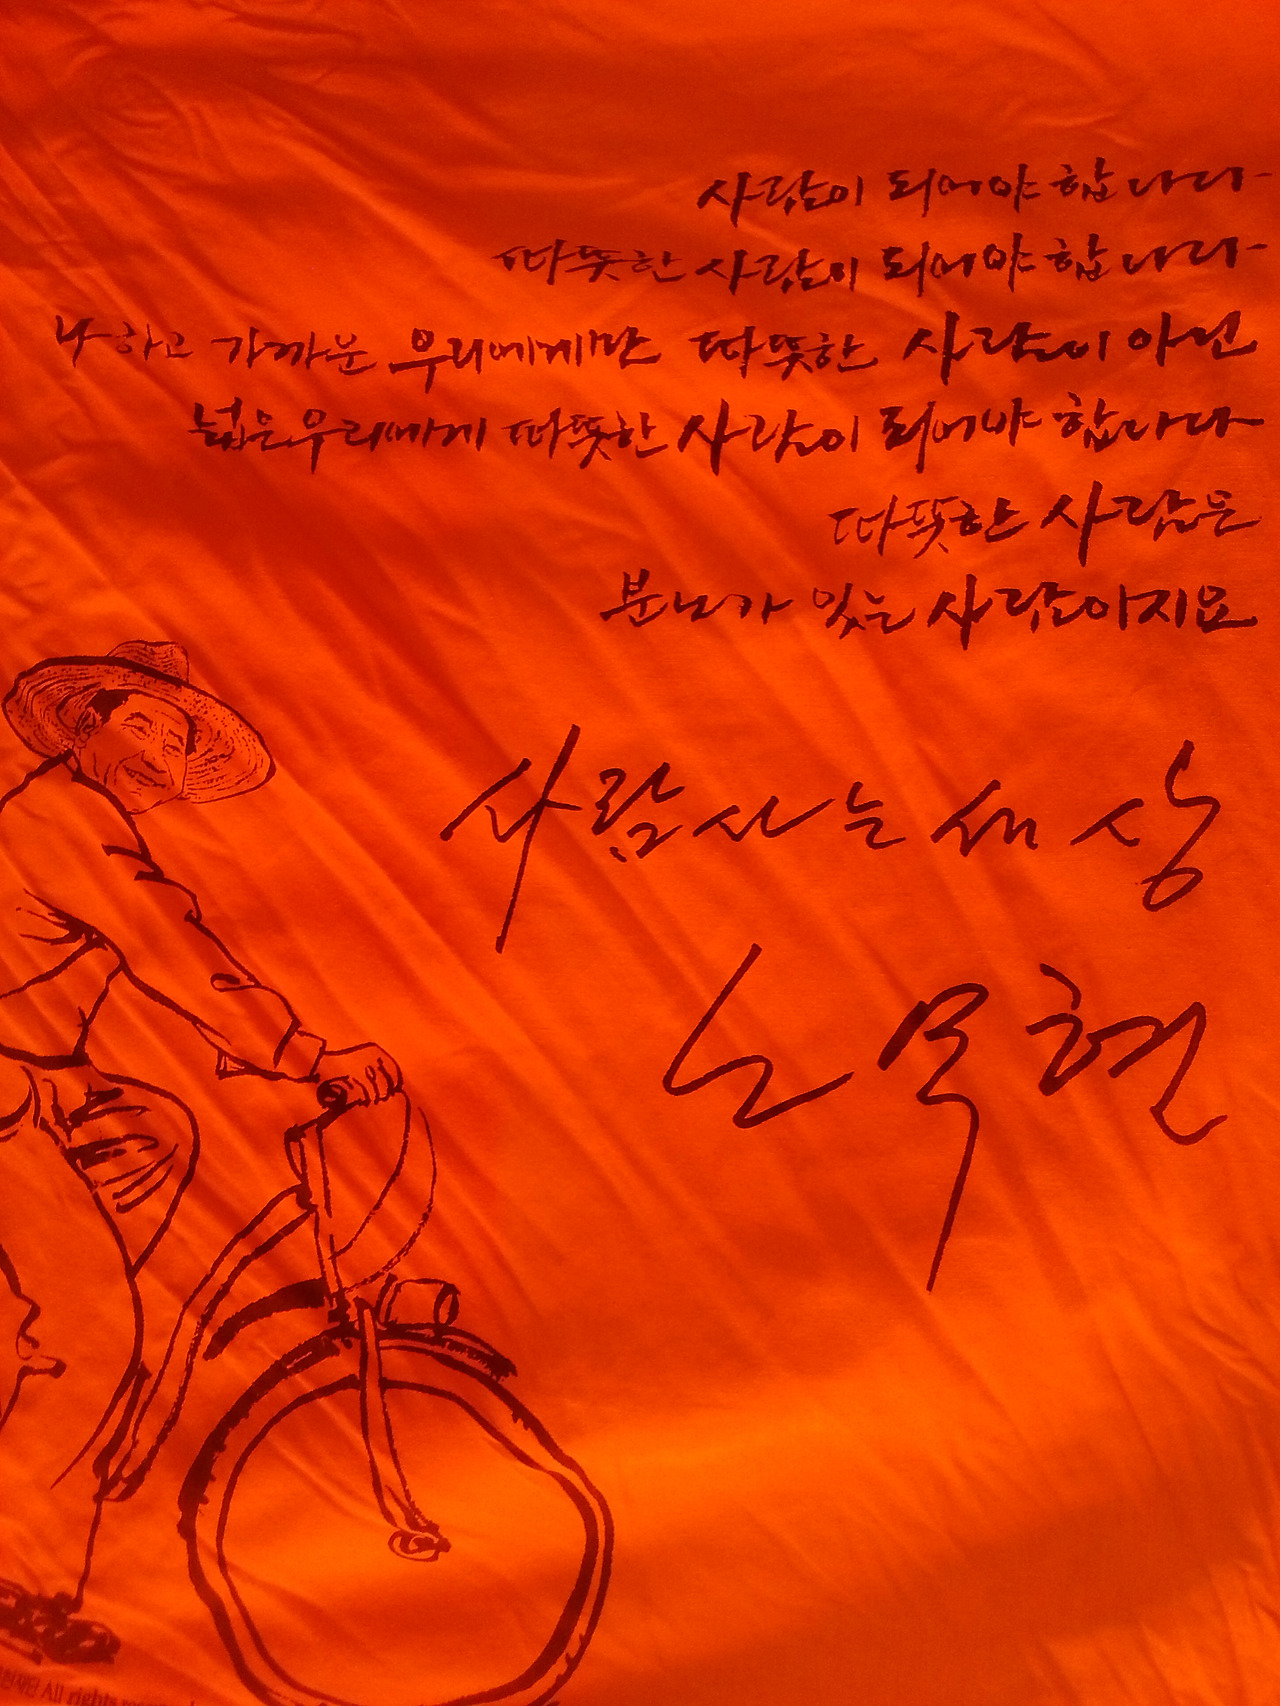 사람이 되어야 합니다
따뜻한 사람이 되어야 합니다
나하고 가까운 우리에게만 따뜻한 사람이 아닌
넓은 우리에게 따뜻한 사람이 되어야 합니다
따뜻한 사람은
분노가 있는 사람이지요
사람사는 세상
노무현
재단 All rights